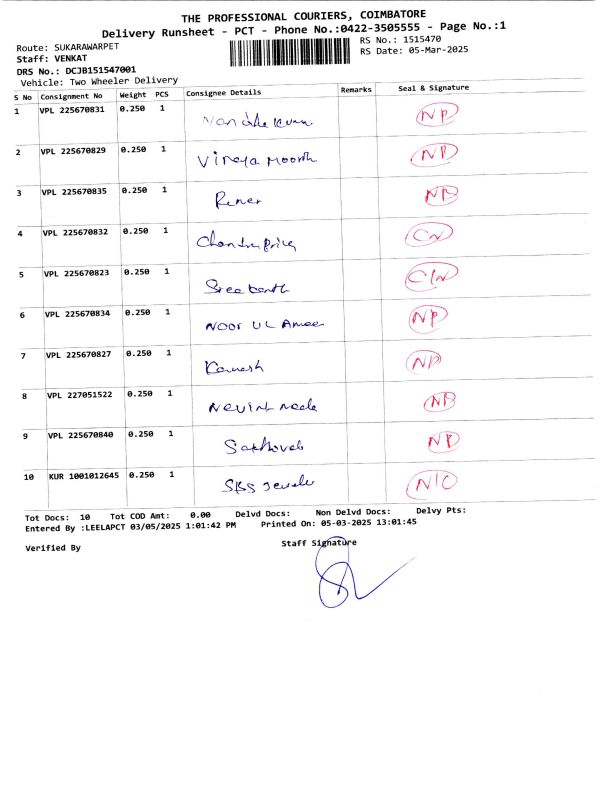 THE PROFESSIONAL COURIERS, COIMBATORE
Delivery Runsheet - PCT - Phone No.:0422-3505555 - Page No.:1
Route: SUKARAWARPET
RS No.: 1515470
Staff: VENKAT
RS Date: 05-Mar-2025
DRS No.: DCJB151547001
Vehicle: Two Wheeler Delivery
S No Consignment No Weight PCS Consignee Details Remarks Seal & Signature
1 VPL 225670831 0.250 1 NP
2 VPL 225670829 0.250 1 Viraja Moorth NP
3 VPL 225670835 0.250 1 NP
4 VPL 225670832 0.250 1 CN
5 VPL 225670823 0.250 1 Sree kanth
6 VPL 225670834 0.250 1 NOOR UL Amee NP
7 VPL 225670827 0.250 1 Kamesh NP
8 VPL 227051522 0.250 1 NP
9 VPL 225670840 0.250 1 NP
10 KUR 1001012645 0.250 1 SBS Jewele N/C
Tot Docs: 10 Tot COD Amt: 0.00 Delvd Docs: Non Delvd Docs: Delvy Pts:
Entered By :LEELAPCT 03/05/2025 1:01:42 PM Printed On: 05-03-2025 13:01:45
Verified By
Staff Signature